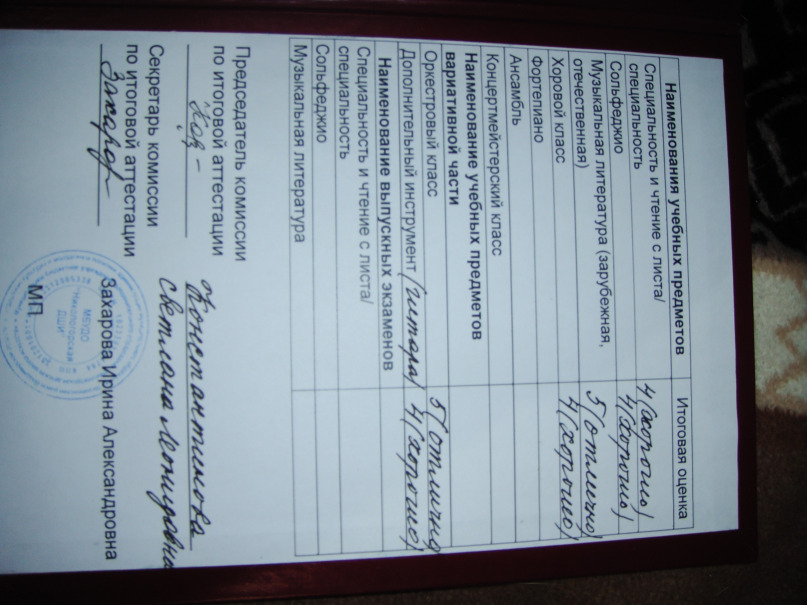 Наименования учебных предметов Итоговая оценка
Специальность и чтение с листа/ 4 (хорошо)
специальность
Сольфеджио 4 (хорошо)
Музыкальная литература (зарубежная, 5 (отлично)
отечественная)
Хоровой класс 4 (хорошо)
Фортепиано
Ансамбль
Концертмейстерский класс
Наименование учебных предметов
вариативной части
Оркестровый класс 5 (отлично)
Дополнительный инструмент (гитара) 4 (хорошо)
Наименование выпускных экзаменов
Специальность и чтение с листа/
специальность
Сольфеджио
Музыкальная литература
Председатель комиссии
по итоговой аттестации
Константинова
Светлана Леонидовна
Секретарь комиссии
по итоговой аттестации
Захарова Ирина Александровна
МП
МБУДО
Никологорская
ДШИ